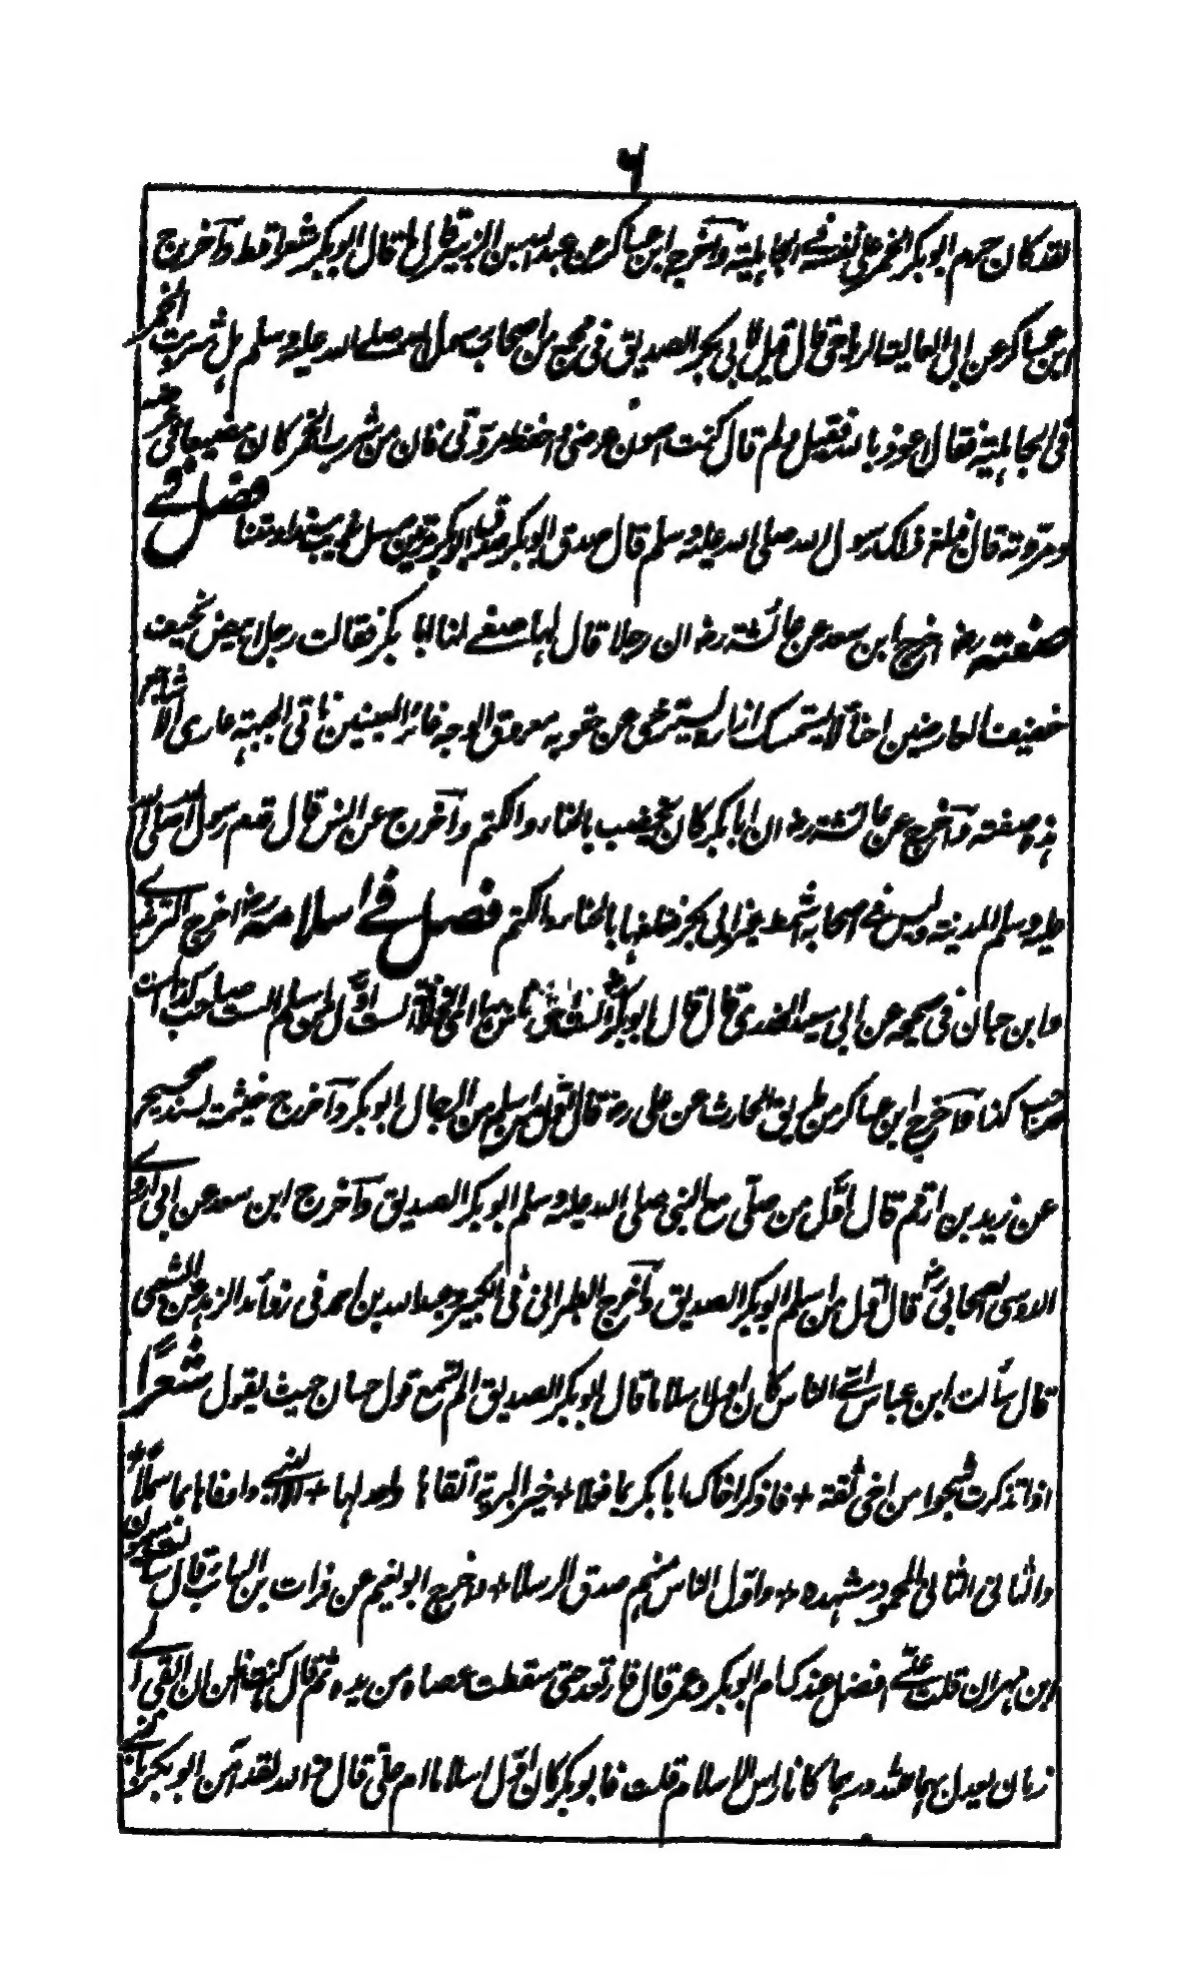 ٦
لقد كان حرم ابوبكر الخمر على نفسه في الجاهلية وآخرج ابن عساكر عن عبد الله بن الزبير قال ما قال ابوبكر شعرا قط وآخرج
ابن عساكر عن ابى العالية الرياحى قال قيل لابى بكر الصديق فى مجمع من اصحاب رسول الله صلے الله عليه وسلم هل شربت الخمر
فى الجاهلية فقال اعوذ بالله فقيل ولم قال كنت اصون عرضى واحفظ مروّتى فان من شرب الخمر كان مضيعا فى عرضه
ومروّته قال فبلغ ذلك رسول الله صلى الله عليه وسلم قال صدق ابوبكر صدق ابوبكر مرتين مرسل غريب سندا ومتنا فصل فے
صفته رضـ اخرج ابن سعد عن عائشة رضـ ان رجلا قال لها صفے لنا ابا بكر فقالت رجل ابيض نحيف
خفيف العارضين اجنأ لا يستمسك ازاره يسترخى عن حقويه معروق الوجه غائر العينين ناتى الجبهة عارى الاشاجع
هذه صفته وآخرج عن عائشة رضـ ان ابا بكر كان يخضب بالحناء والكتم وآخرج عن انس قال قدم رسول الله صلى الله
عليه وسلم المدينة وليس فے اصحابه اشمط غير ابى بكر فغلفها بالحناء والكتم فصل فے اسلامه رضـ اخرج الترمذے
وابن حبان فى صحيحه عن ابى سعيد الخدرى قال قال ابوبكر الست احق الناس بها اى الخلافة الست اوّل من اسلم الست صاحب كذا الست
صاحب كذا وآخرج ابن عساكر من طريق الحارث عن على رضـ قال اوّل من اسلم من الرجال ابوبكر وآخرج خيثمة بسند صحيح
عن زيد بن ارقم قال اوّل من صلّى مع النبى صلى الله عليه وسلم ابوبكر الصديق وآخرج ابن سعد عن ابى اروے
الدوسى الصحابى رضـ قال اوّل من اسلم ابوبكر الصديق وآخرج الطبرانى فى الكبير وعبد الله بن احمد فى زوائد الزهد عن الشعبى
قال سألت ابن عباس اىّ الناس كان اول اسلاما قال ابوبكر الصديق الم تسمع قول حسان حيث يقول شعرًا
اذا تذكرت شجوا من اخى ثقة + فاذكر اخاك ابا بكر بما فعلا + خير البرية اتقاها واعدلها + الا النبے واوفاها بما حملا
والثانى التالى المحمود مشهده + واول الناس منهم صدق الرسلا + وآخرج ابونعيم عن فرات بن السائب قال سألت ميمون
ابن مهران قلت علىّ افضل عندك ام ابوبكر وعمر قال فارتعد حتى سقطت عصاه من يده ثم قال ما كنت اظن ان ابقى الے
زمان يعدل بهما لله درهما كانا راس الاسلام قلت فابوبكر كان اوّل اسلاما ام علىّ قال والله لقد آمن ابوبكر بالنبے